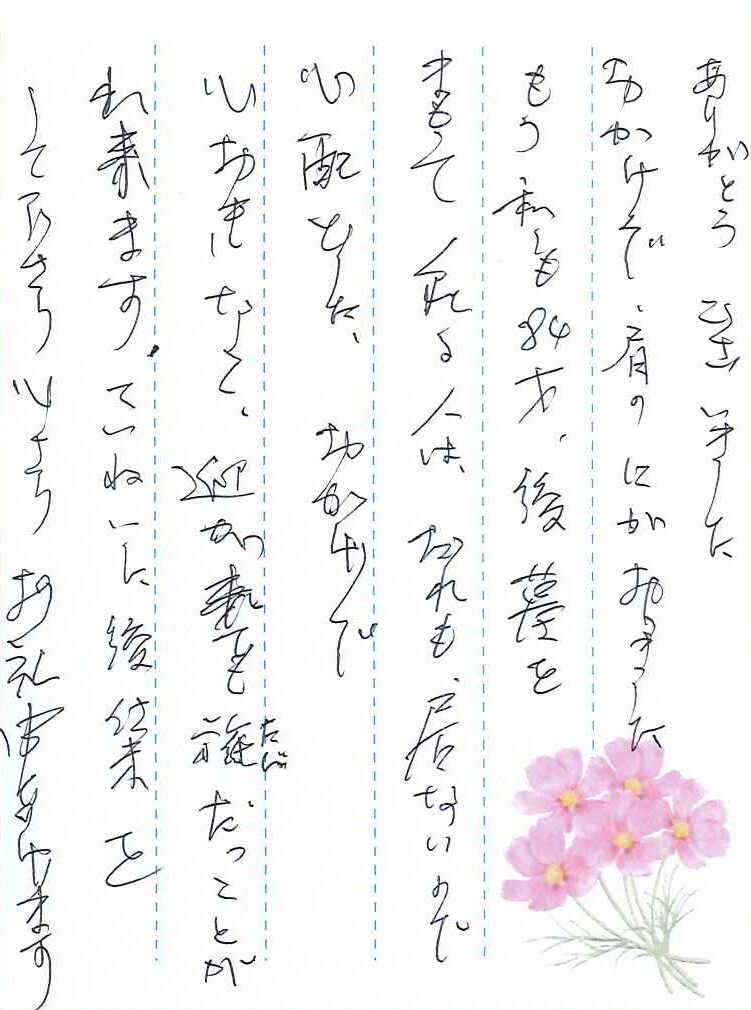 ありがとうございました
おかげで、肩のにがおりました
もう私も84才、後墓を
まもって 見る人は、だれも、居ないので
心配でした、 おかげで
心おきなく、迎かい来ても
れ来ます。ていねいに後始末を
して下さり 心より お礼申あげます